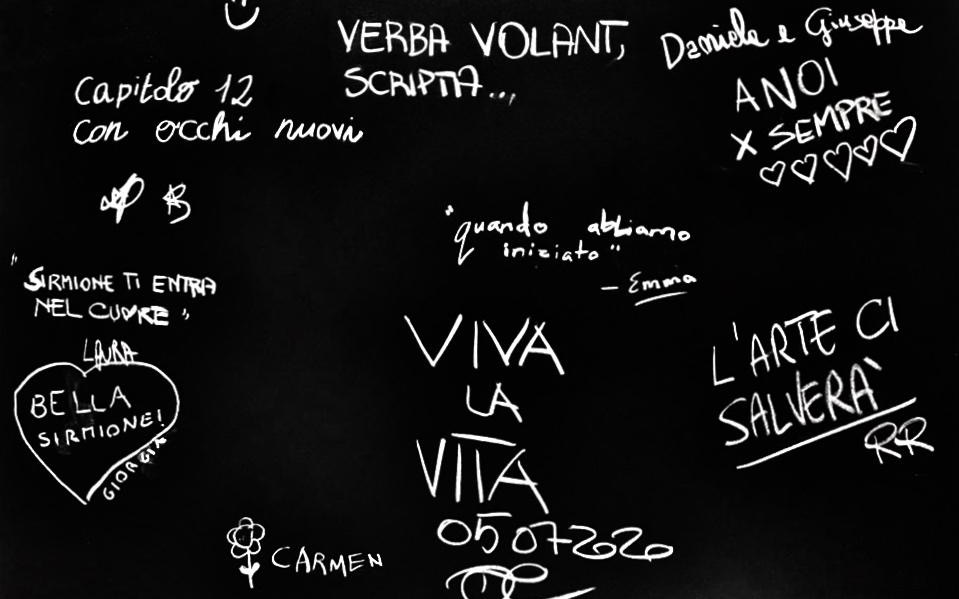 VERBA VOLANT,
SCRIPTA...
Daniela e Giuseppe
A NOI
X SEMPRE
Capitolo 12
con occhi nuovi
"quando abbiamo
iniziato"
— Emma
"SIRMIONE TI ENTRA
NEL CUORE"
LAURA
BELLA
SIRMIONE!
GIORGIA
VIVA
LA
VITA
05 07 2020
L'ARTE CI
SALVERÀ
RR
CARMEN